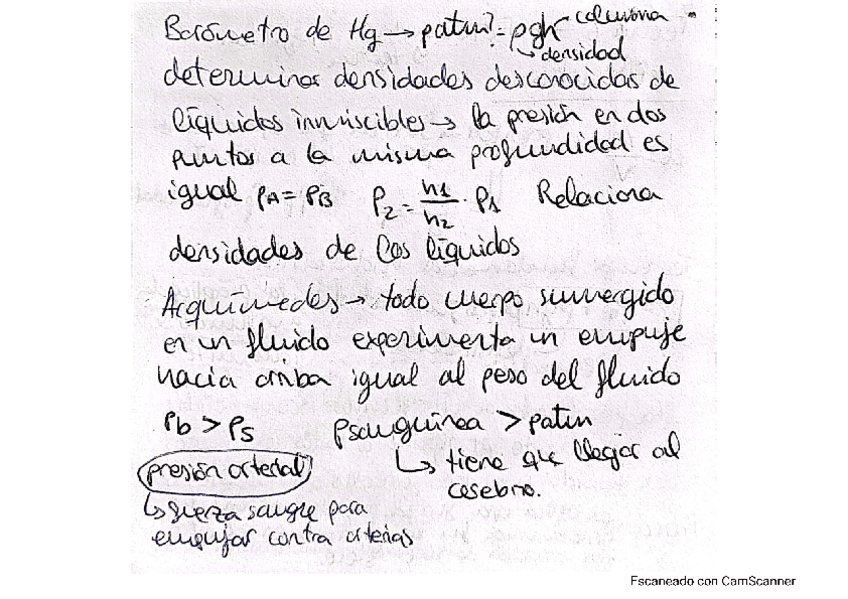 Barómetro de Hg → patm? = ρgh columna
↳ densidad
determinar densidades desconocidas de
líquidos inmiscibles → la presión en dos
puntos a la misma profundidad es
igual PA = PB ρ2 = h1/h2 · ρ1 Relaciona
densidades de los líquidos
Arquímedes → todo cuerpo sumergido
en un fluido experimenta un empuje
hacia arriba igual al peso del fluido
Pb > Ps Psanguínea > patm
presión arterial ↳ tiene que llegar al
cerebro.
↳ fuerza sangre para
empujar contra arterias
Escaneado con CamScanner